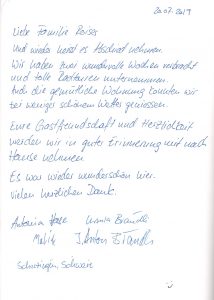 20.07.2019
Liebe Familie
Und wieder heisst es Abschied nehmen.
Wir haben zwei wundervolle Wochen verbracht
und tolle Radtouren unternommen.
Auch die gemütliche Wohnung konnten wir
bei weniger schönem Wetter geniessen.
Eure Gastfreundschaft und Herzlichkeit
werden wir in guter Erinnerung mit nach
Hause nehmen
Es war wieder wunderschön hier.
Vielen herzlichen Dank.
Antonia
Anton
Schweiz